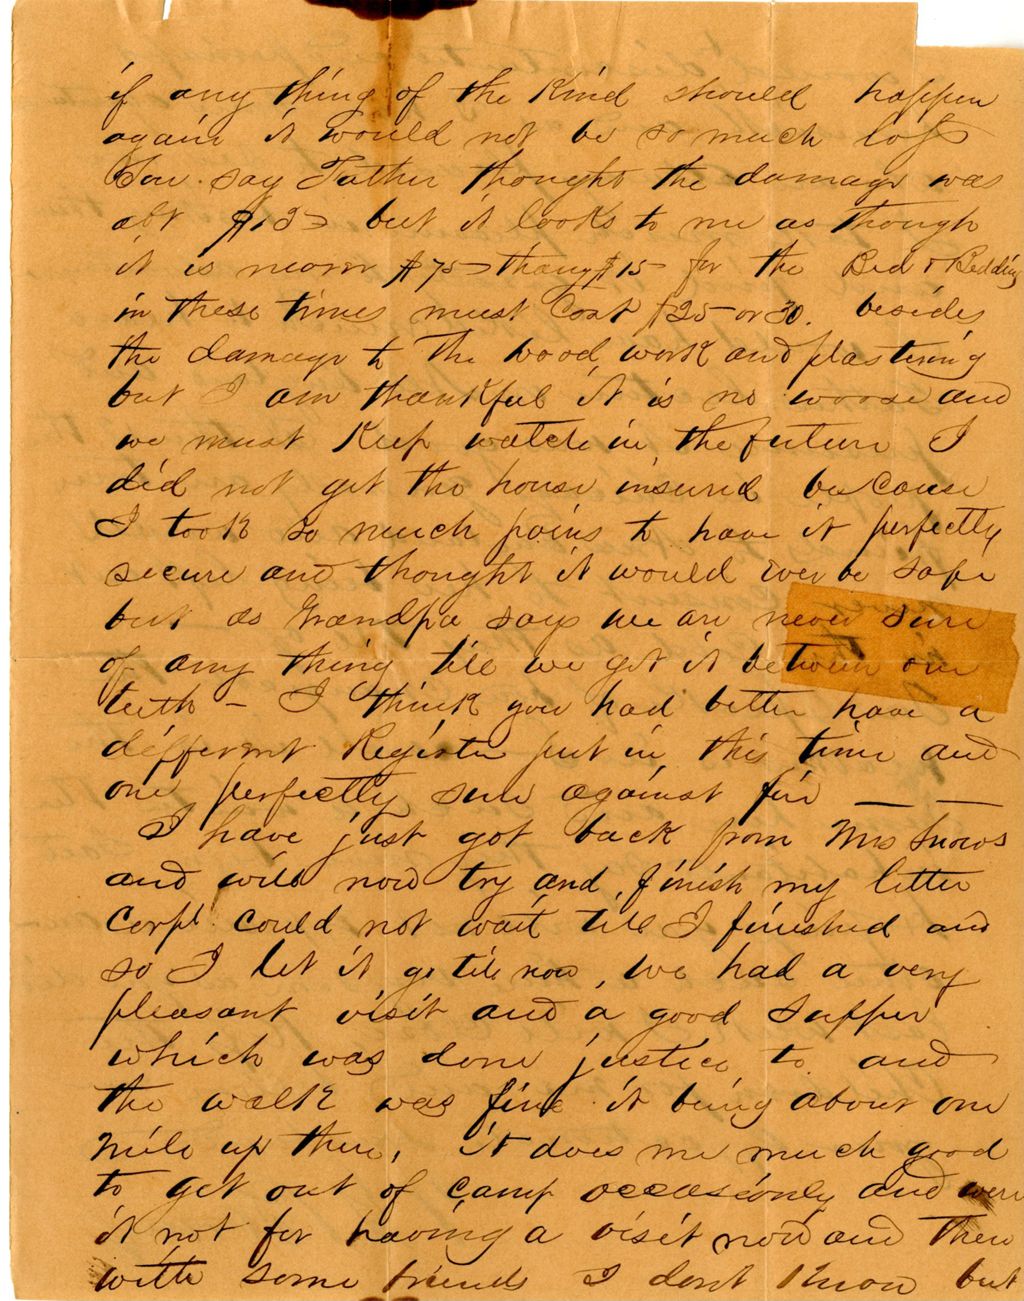 if any thing of the Kind should happen
again it would not be so much loss
You say Father thought the damage was
abt but it looks to me as though
it is nearer $75 than $15 for the Bed & Bedding
in these times must Cost $25 or 30. besides
the damage to the wood work and plastering
but I am thankful it is no worse and
we must Keep watch in the future I
did not get the house insured because
I took so much pains to have it perfectly
secure and thought it would ever be safe
but as Grandpa says we are never sure
of any thing till we got it between our
teeth – I think you had better have a
different Register put in this time and
one perfectly sure against fire — —
I have just got back from Mrs Snows
and will now try and finish my letter
Corpl could not wait till I finished and
so I let it go till now, we had a very
pleasant visit and a good supper
which was done justice to and
the walk was fine it being about one
Mile up there, it does me much good
to get out of camp occasionly and were
it not for having a visit now and then
with some friends I dont Know but